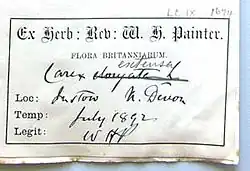 LC IX 1694
Ex Herb: Rev: W. H. Painter.
FLORA BRITANNIARUM.
extensa
Carex L
Loc: Instow N. Devon
Temp: July 1892
Legit: W H P